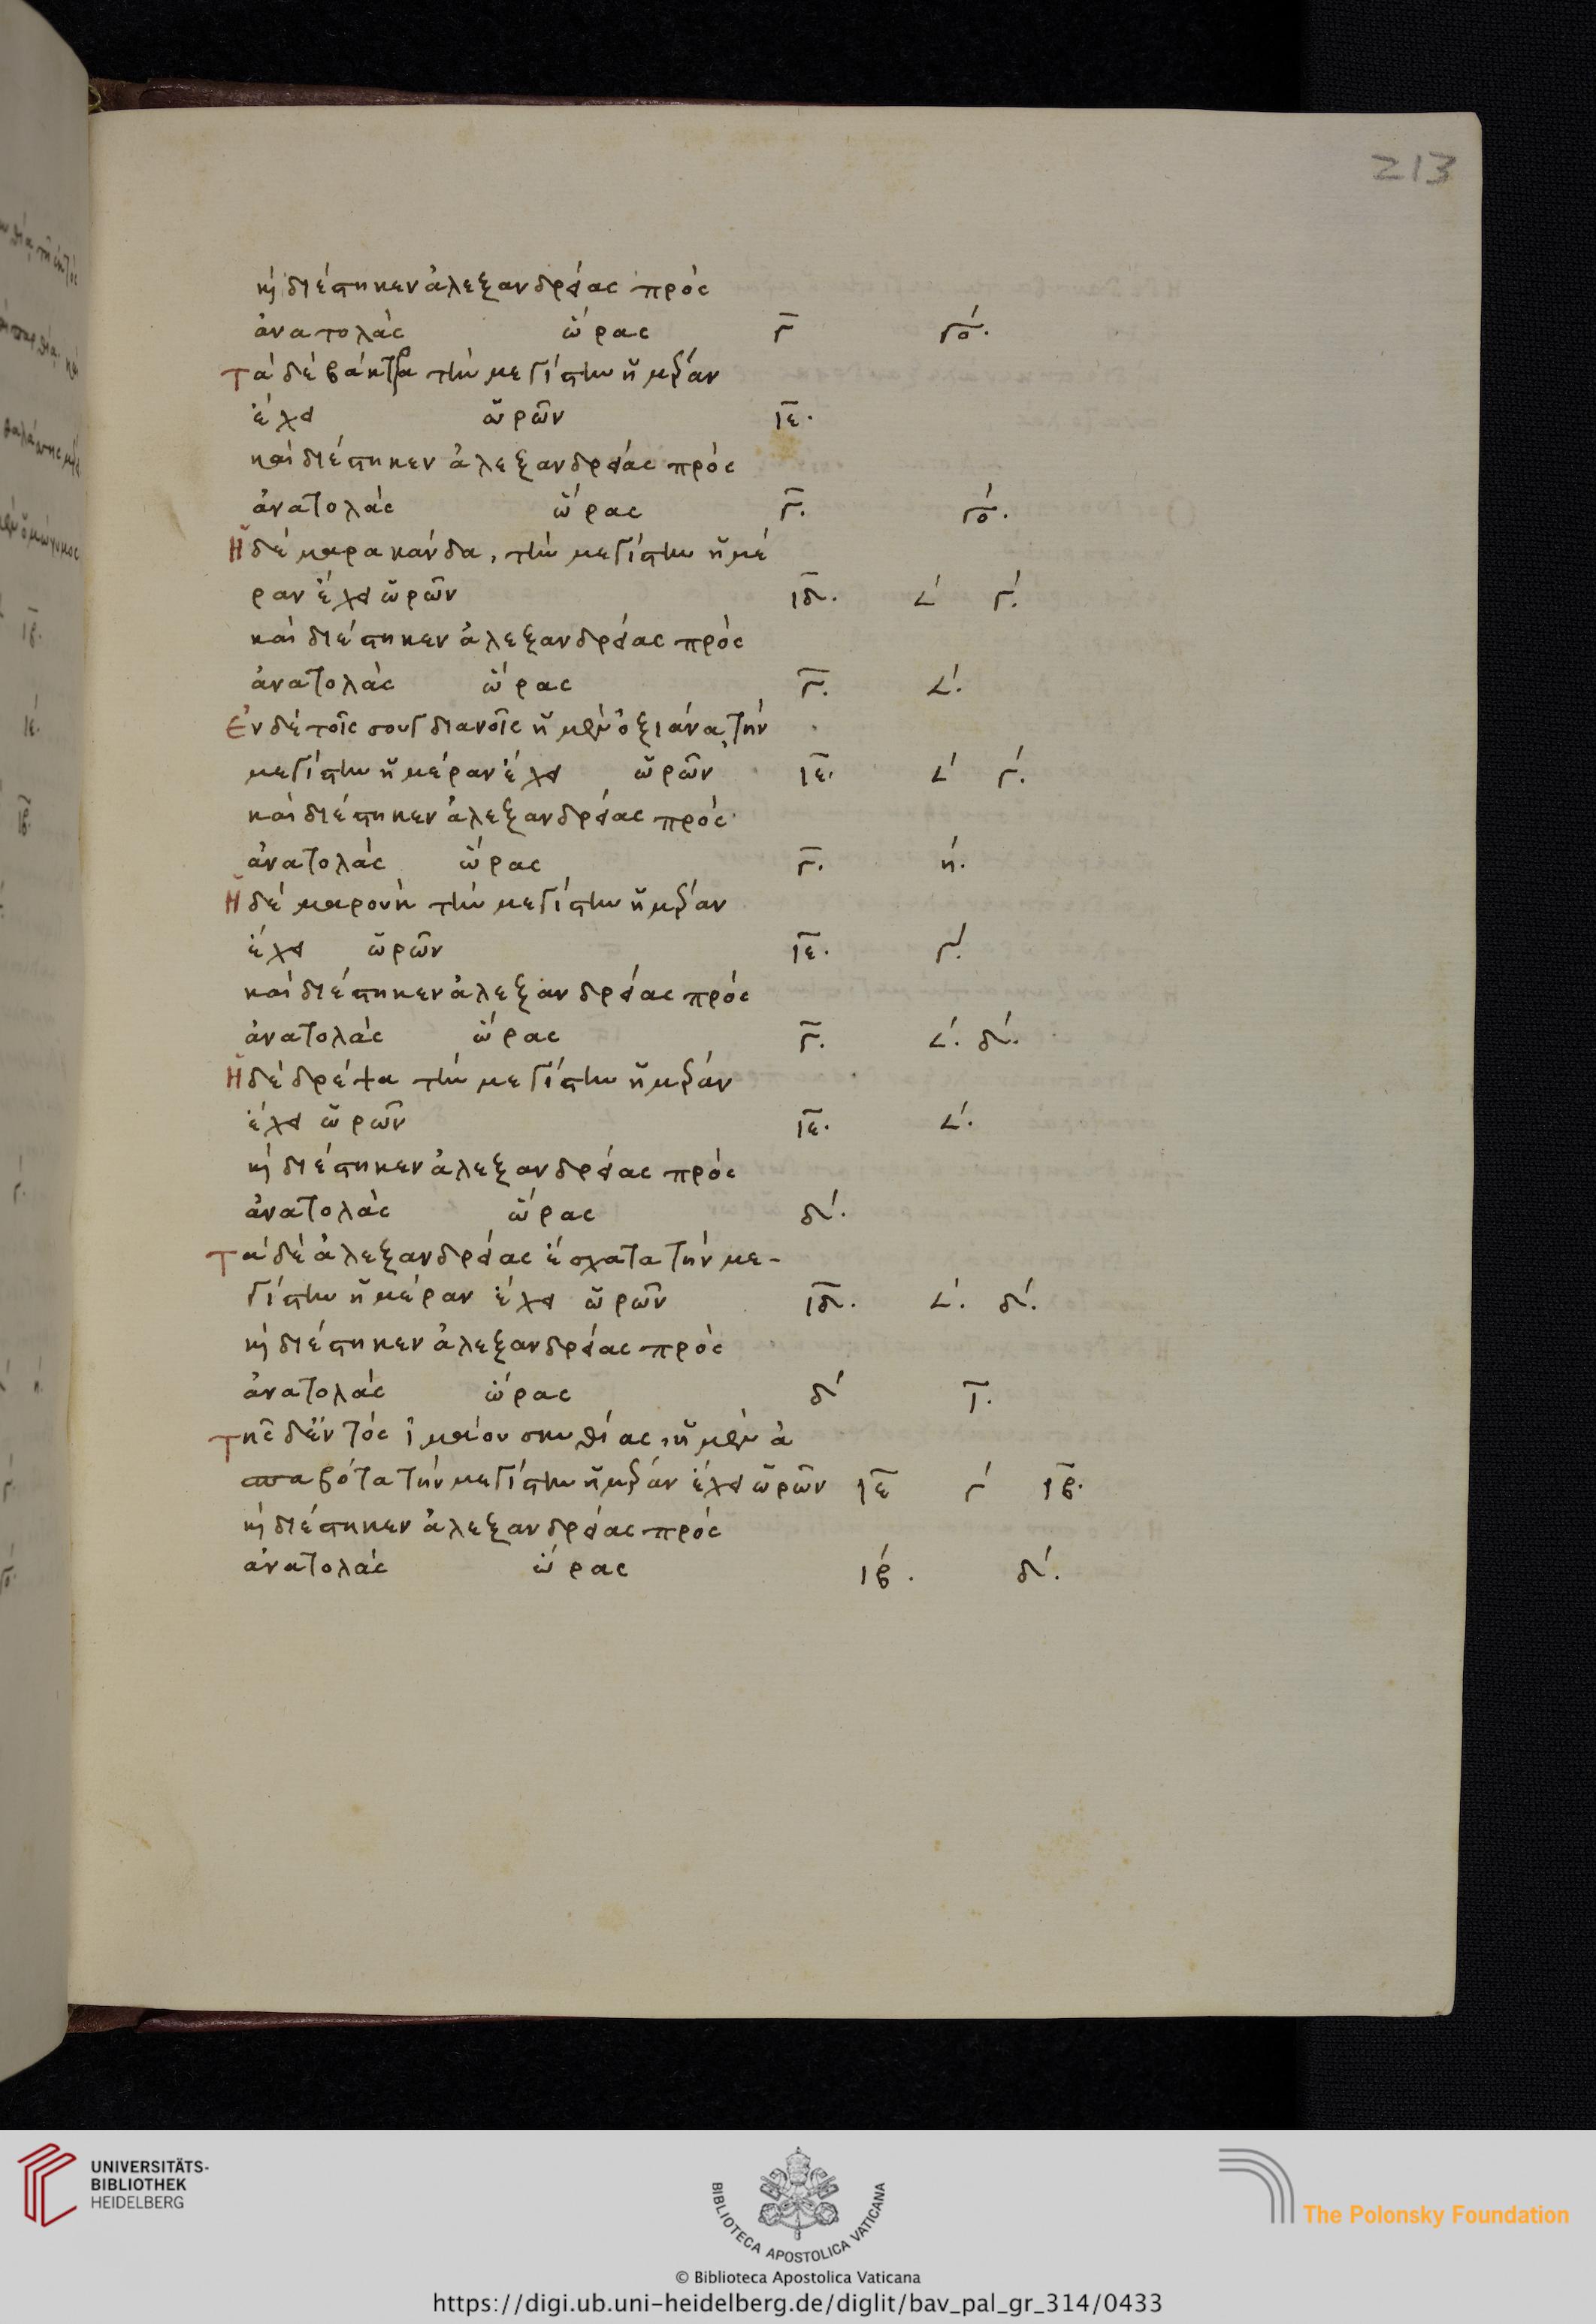 213
κ(αὶ) διέστηκεν ἀλεξανδρείας πρὸς
ἀνατολὰς ὥρας γ̅ γο´.
Τὰ δὲ βάκτρα τὴν μεγίστην ἡμέραν
ἔχει ὡρῶν ι̅ε̅.
καὶ διέστηκεν ἀλεξανδρείας πρὸς
ἀνατολὰς ὥρας γ̅. γο´.
Ἡ δὲ μαρακάνδα, τὴν μεγίστην ἡμέ
ραν ἔχει ὡρῶν ι̅δ̅. ∠´ γ´.
καὶ διέστηκεν ἀλεξανδρείας πρὸς
ἀνατολὰς ὥρας γ̅. ∠´.
Ἐν δὲ τοῖς σουγδιανοῖς ἡ μὲν ὀξιάνα, τὴν
μεγίστην ἡμέραν ἔχει ὡρῶν ι̅ε̅. ∠´ γ´.
καὶ διέστηκεν ἀλεξανδρείας πρὸς
ἀνατολὰς ὥρας γ̅. η´.
Ἡ δὲ μαρουὴ τὴν μεγίστην ἡμέραν
ἔχει ὡρῶν ι̅ε̅. γ´.
καὶ διέστηκεν ἀλεξανδρείας πρὸς
ἀνατολὰς ὥρας γ̅. ∠´. δ´.
Ἡ δὲ δρέψα τὴν μεγίστην ἡμέραν
ἔχει ὡρῶν ι̅ε̅. ∠´.
κ(αὶ) διέστηκεν ἀλεξανδρείας πρὸς
ἀνατολὰς ὥρας δ´.
Τὰ δὲ ἀλεξανδρείας ἔσχατα τὴν με-
γίστην ἡμέραν ἔχει ὡρῶν ι̅δ̅. ∠´. δ´.
κ(αὶ) διέστηκεν ἀλεξανδρείας πρὸς
ἀνατολὰς ὥρας δ´ ι̅.
Τῆς δ᾽ ἐντὸς ἰμαίου σκυθίας, ἡ μὲν ἀ
βότα τὴν μεγίστην ἡμέραν ἔχει ὡρῶν ι̅ε̅ γ´ ι̅β̅.
κ(αὶ) διέστηκεν ἀλεξανδρείας πρὸς
ἀνατολὰς ὥρας ιβ´. δ´.
UNIVERSITÄTS-
BIBLIOTHEK
HEIDELBERG
BIBLIOTECA APOSTOLICA VATICANA
The Polonsky Foundation
© Biblioteca Apostolica Vaticana
https://digi.ub.uni-heidelberg.de/diglit/bav_pal_gr_314/0433